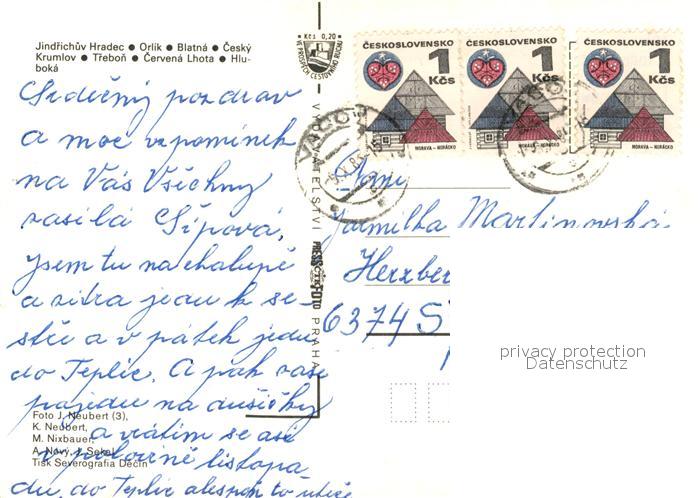 Jindřichův Hradec ● Orlík ● Blatná ● Český
Krumlov ● Třeboň ● Červená Lhota ● Hlu-
boká
Srdečný pozdrav
a moc vzpomínek
na Vás Všechny
zasílá Šípová,
jsem tu na chalupě
a zítra jedu k se-
stře a v pátek jedu
do Teplic. A pak zase
pojedu na dušičky
a vrátím se asi
v polovině listopa
du, do Teplic alespoň to
Foto J. Neubert (3),
K. Neubert,
M. Nixbauer,
A. Nový, J. Sekal
Tisk Severografia Děčín
Kčs 0,20
VE PROSPĚCH CESTOVNÍHO RUCHU
VYDAVATELSTVÍ
PRESSFOTO
ČTK
PRAHA
ČESKOSLOVENSKO
1
Kčs
MORAVA – HORÁCKO
ČESKOSLOVENSKO
1
Kčs
MORAVA – HORÁCKO
ČESKOSLOVENSKO
1
Kčs
MORAVA – HORÁCKO
Jarmilka Martinovská
Herzber
6374 S
privacy protection
Datenschutz